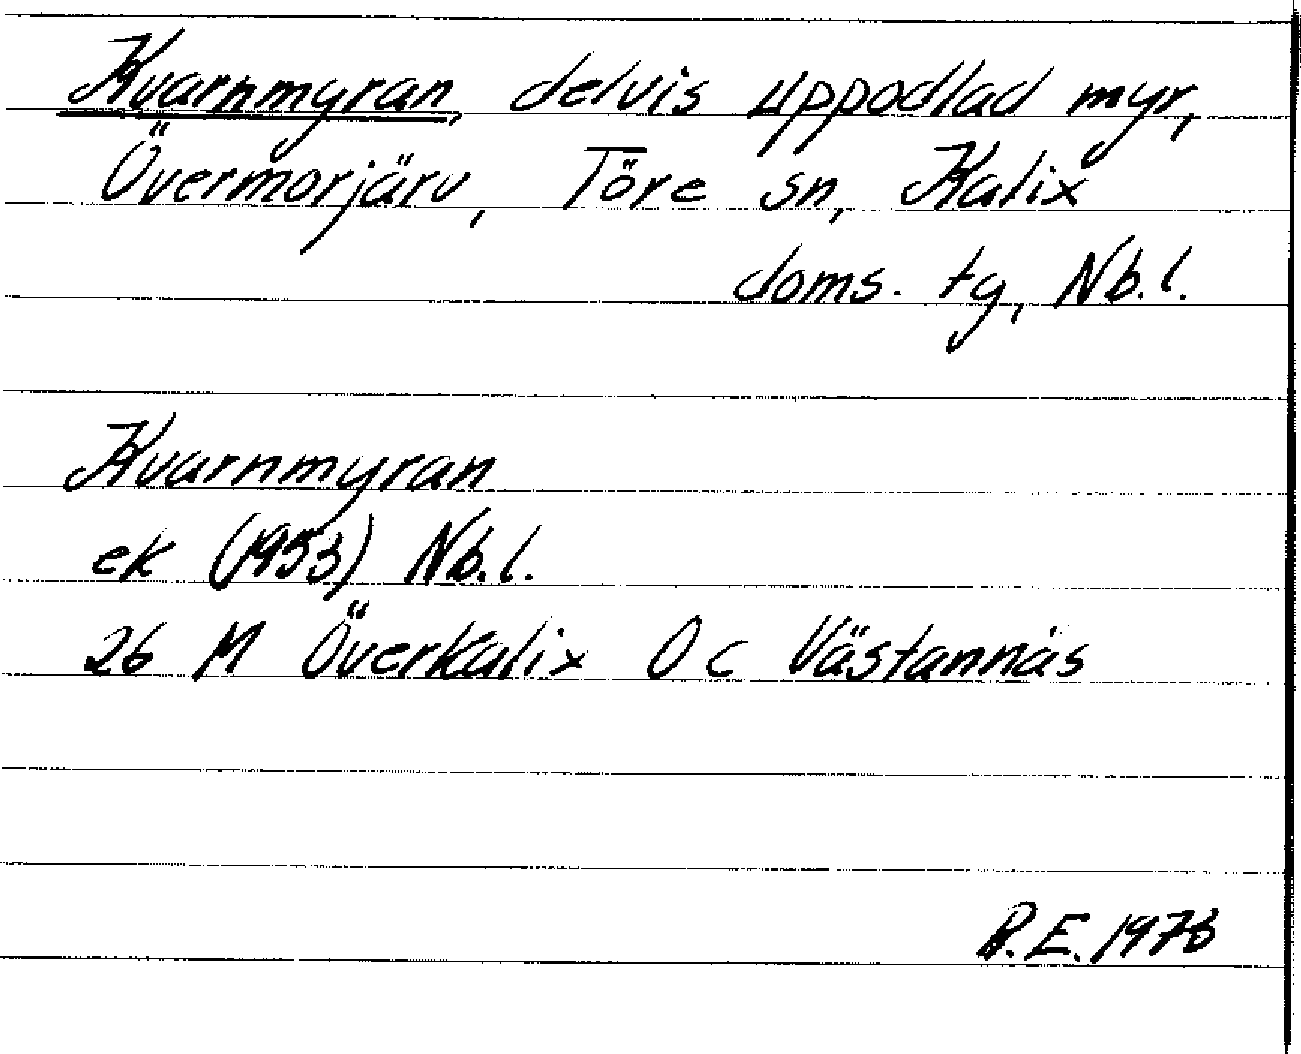 Kvarnmyran, delvis uppodlad myr,
Övermorjärv, Töre sn, Kalix
doms. tg, Nb.l.
Kvarnmyran
ek (1953) Nb.l.
26 M Överkalix 0 c Västannäs
R.E. 1973